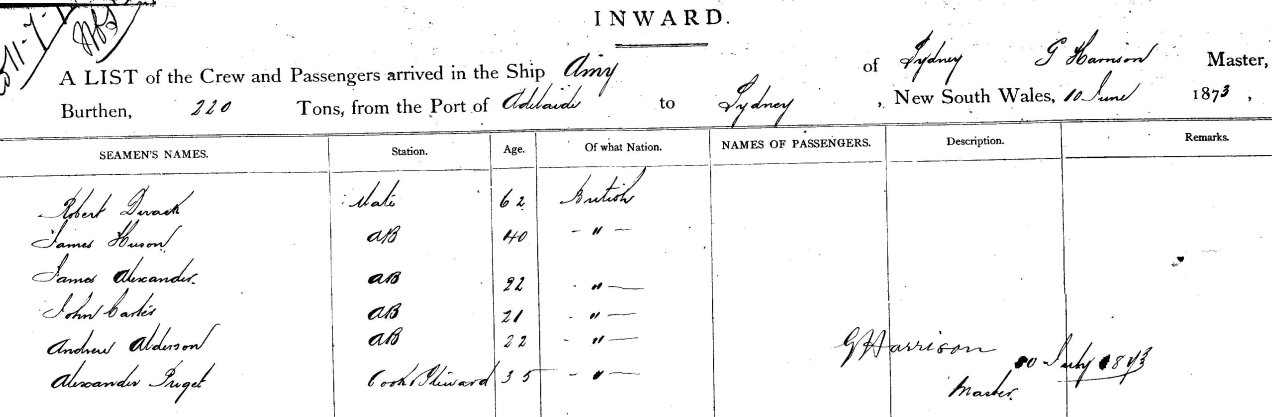 INWARD.
A LIST of the Crew and Passengers arrived in the Ship Amy of Sydney G Harrison Master,
Burthen, 220 Tons, from the Port of Adelaide to Sydney, New South Wales, 10 June 1873,
SEAMEN'S NAMES. Station. Age. Of what Nation. NAMES OF PASSENGERS. Description. Remarks.
Robert Mate 62 British
James Huson AB 40 - " -
James Alexander. AB 22 - " -
John Carter AB 21 - " -
Andrew Alderson AB 22 - " -
G Harrison 10 July 1873
Alexander Cook & Steward 35 - " -
Master.